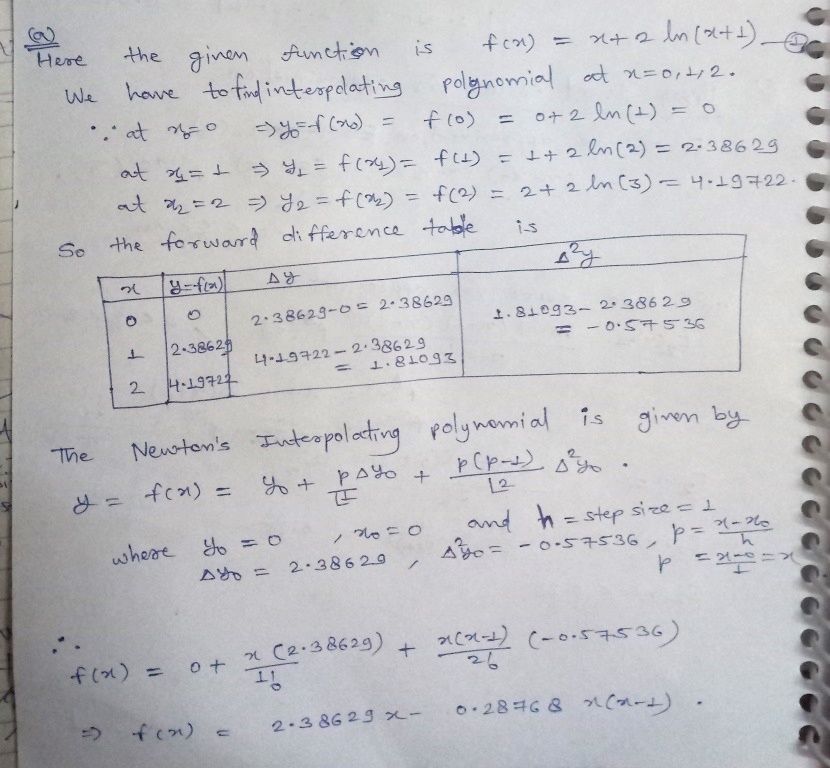 (a)
Here the given function is f(x) = x + 2 ln(x+1) — ①
We have to find interpolating polynomial at x = 0, 1, 2.
∵ at x₀=0 ⇒ y₀=f(x₀) = f(0) = 0+2 ln(1) = 0
at x₁=1 ⇒ y₁ = f(x₁) = f(1) = 1+2 ln(2) = 2.38629
at x₂=2 ⇒ y₂ = f(x₂) = f(2) = 2+2 ln(3) = 4.19722.
So the forward difference table is
x y=f(x) Δy Δ²y
0 0 2.38629-0 = 2.38629 1.81093-2.38629
= -0.57536
1 2.38629 4.19722-2.38629
= 1.81093
2 4.19722
The Newton's Interpolating polynomial is given by
y = f(x) = y₀ + pΔy₀/⌊1 + p(p-1)/⌊2 Δ²y₀ .
where y₀ = 0 , x₀ = 0 and h = step size = 1
Δy₀ = 2.38629 , Δ²y₀ = -0.57536 , p = x-x₀/h
p = x-0/1 = x
∴
f(x) = 0 + x(2.38629)/1! + x(x-1)/2! (-0.57536)
⇒ f(x) = 2.38629x - 0.28768 x(x-1) .